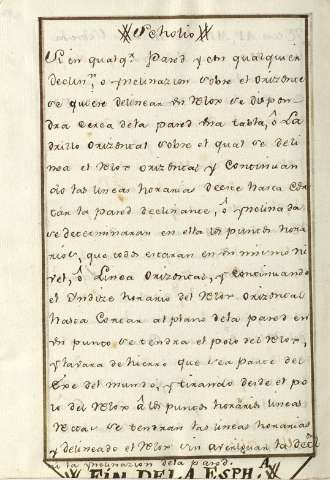 Scholio
Si en qualqᵃ. Pared y con qualquier
declinⁿ, o ynclinazion sobre el orizonte
se quiere delinear un Relox se dispon-
dra cerca de la pared una tabla, ô La
drillo orizontal sobre el qual se deli-
nea el Relox orizontal y Continuan
do las lineas horarias deeste hasta Cor
tar la pared declinante, ô ynclinada
se determinaran en ella los puntos hora
rios, que todos estaran en un mismo ni
vel, ô Linea orizontal, y Continuando
el Yndize horario del Relox orizontal
hasta Cortar al plano de la pared en
un punto se tendra el polo del Relox,
y la vara de hierro que sea parte del
Exe del mundo, y tirando desde el po
lo del Relox â los puntos horarios lineas
Rectas se tendran las lineas horarias
y delineado el Relox sin averiguar la decli
ni la ynclinazion de la pared.
FIM DE LA ESPHᴬ.